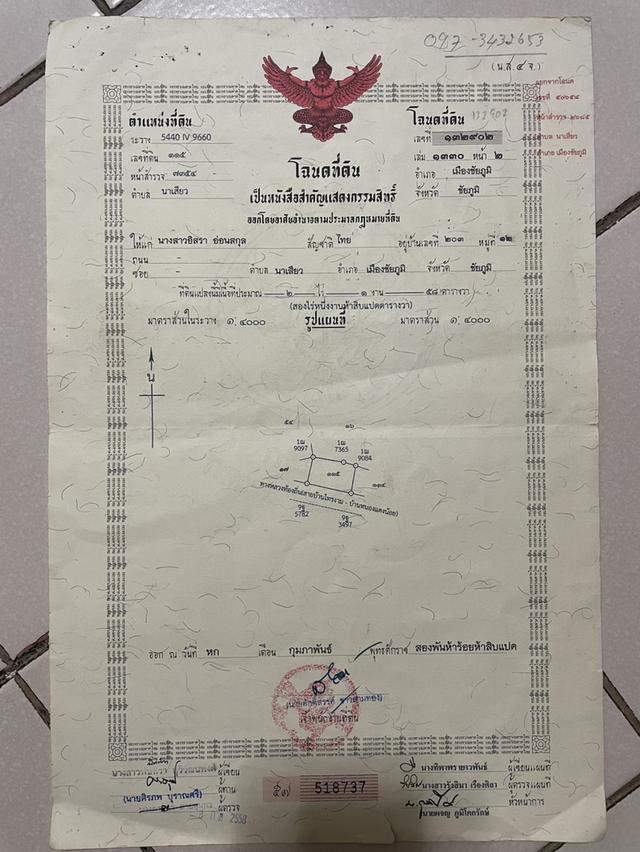 097-3432653
(น.ส.๔ จ.)
ตำแหน่งที่ดิน
ระวาง 5440 IV 9660
เลขที่ดิน ๑๑๕
หน้าสำรวจ ๗๓๕๔
ตำบล นาเสียว
โฉนดที่ดิน
เลขที่ ๑๓๒๙๐๒
เล่ม ๑๓๓๐ หน้า ๒
อำเภอ เมืองชัยภูมิ
จังหวัด ชัยภูมิ
แยกจากโฉนด
ตำบล นาเสียว
อำเภอ เมืองชัยภูมิ
โฉนดที่ดิน
เป็นหนังสือสำคัญแสดงกรรมสิทธิ์
ออกโดยอาศัยอำนาจตามประมวลกฎหมายที่ดิน
ให้แก่ นางสาวอิสรา อ่อนสกุล สัญชาติ ไทย อยู่บ้านเลขที่ ๒๐๓ หมู่ที่ ๑๒
ถนน -
ซอย - ตำบล นาเสียว อำเภอ เมืองชัยภูมิ จังหวัด ชัยภูมิ
ที่ดินแปลงนี้มีเนื้อที่ประมาณ ๒ ไร่ ๑ งาน ๕๘ ตารางวา
(สองไร่หนึ่งงานห้าสิบแปดตารางวา)
มาตราส่วนในระวาง ๑:๔๐๐๐ รูปแผนที่ มาตราส่วน ๑:๔๐๐๐
น
๕๔ ๑๖
1ผ 9097
1ผ 7365
1ผ 9084
๑๗ ๑๑๕
ทางหลวงท้องถิ่น(สายบ้านไทรงาม - บ้านหนองแดงน้อย)
9ฐ 5782
9ฐ 3497
ออก ณ วันที่ หก เดือน กุมภาพันธ์ พุทธศักราช สองพันห้าร้อยห้าสิบแปด
เจ้าพนักงานที่ดิน
ผู้เขียน
ผู้ทาน
(นายศิรภพ บุราณศรี)
ผู้ตรวจ
๕๗ 518737
นางทิพาพร ยาวพันธ์ ผู้เขียนแผนที่
นางสาวรุ้งลิมา เรืองศิลา ผู้ตรวจแผนที่
นายผจญ ภูมิโคกรักษ์ หัวหน้าการ